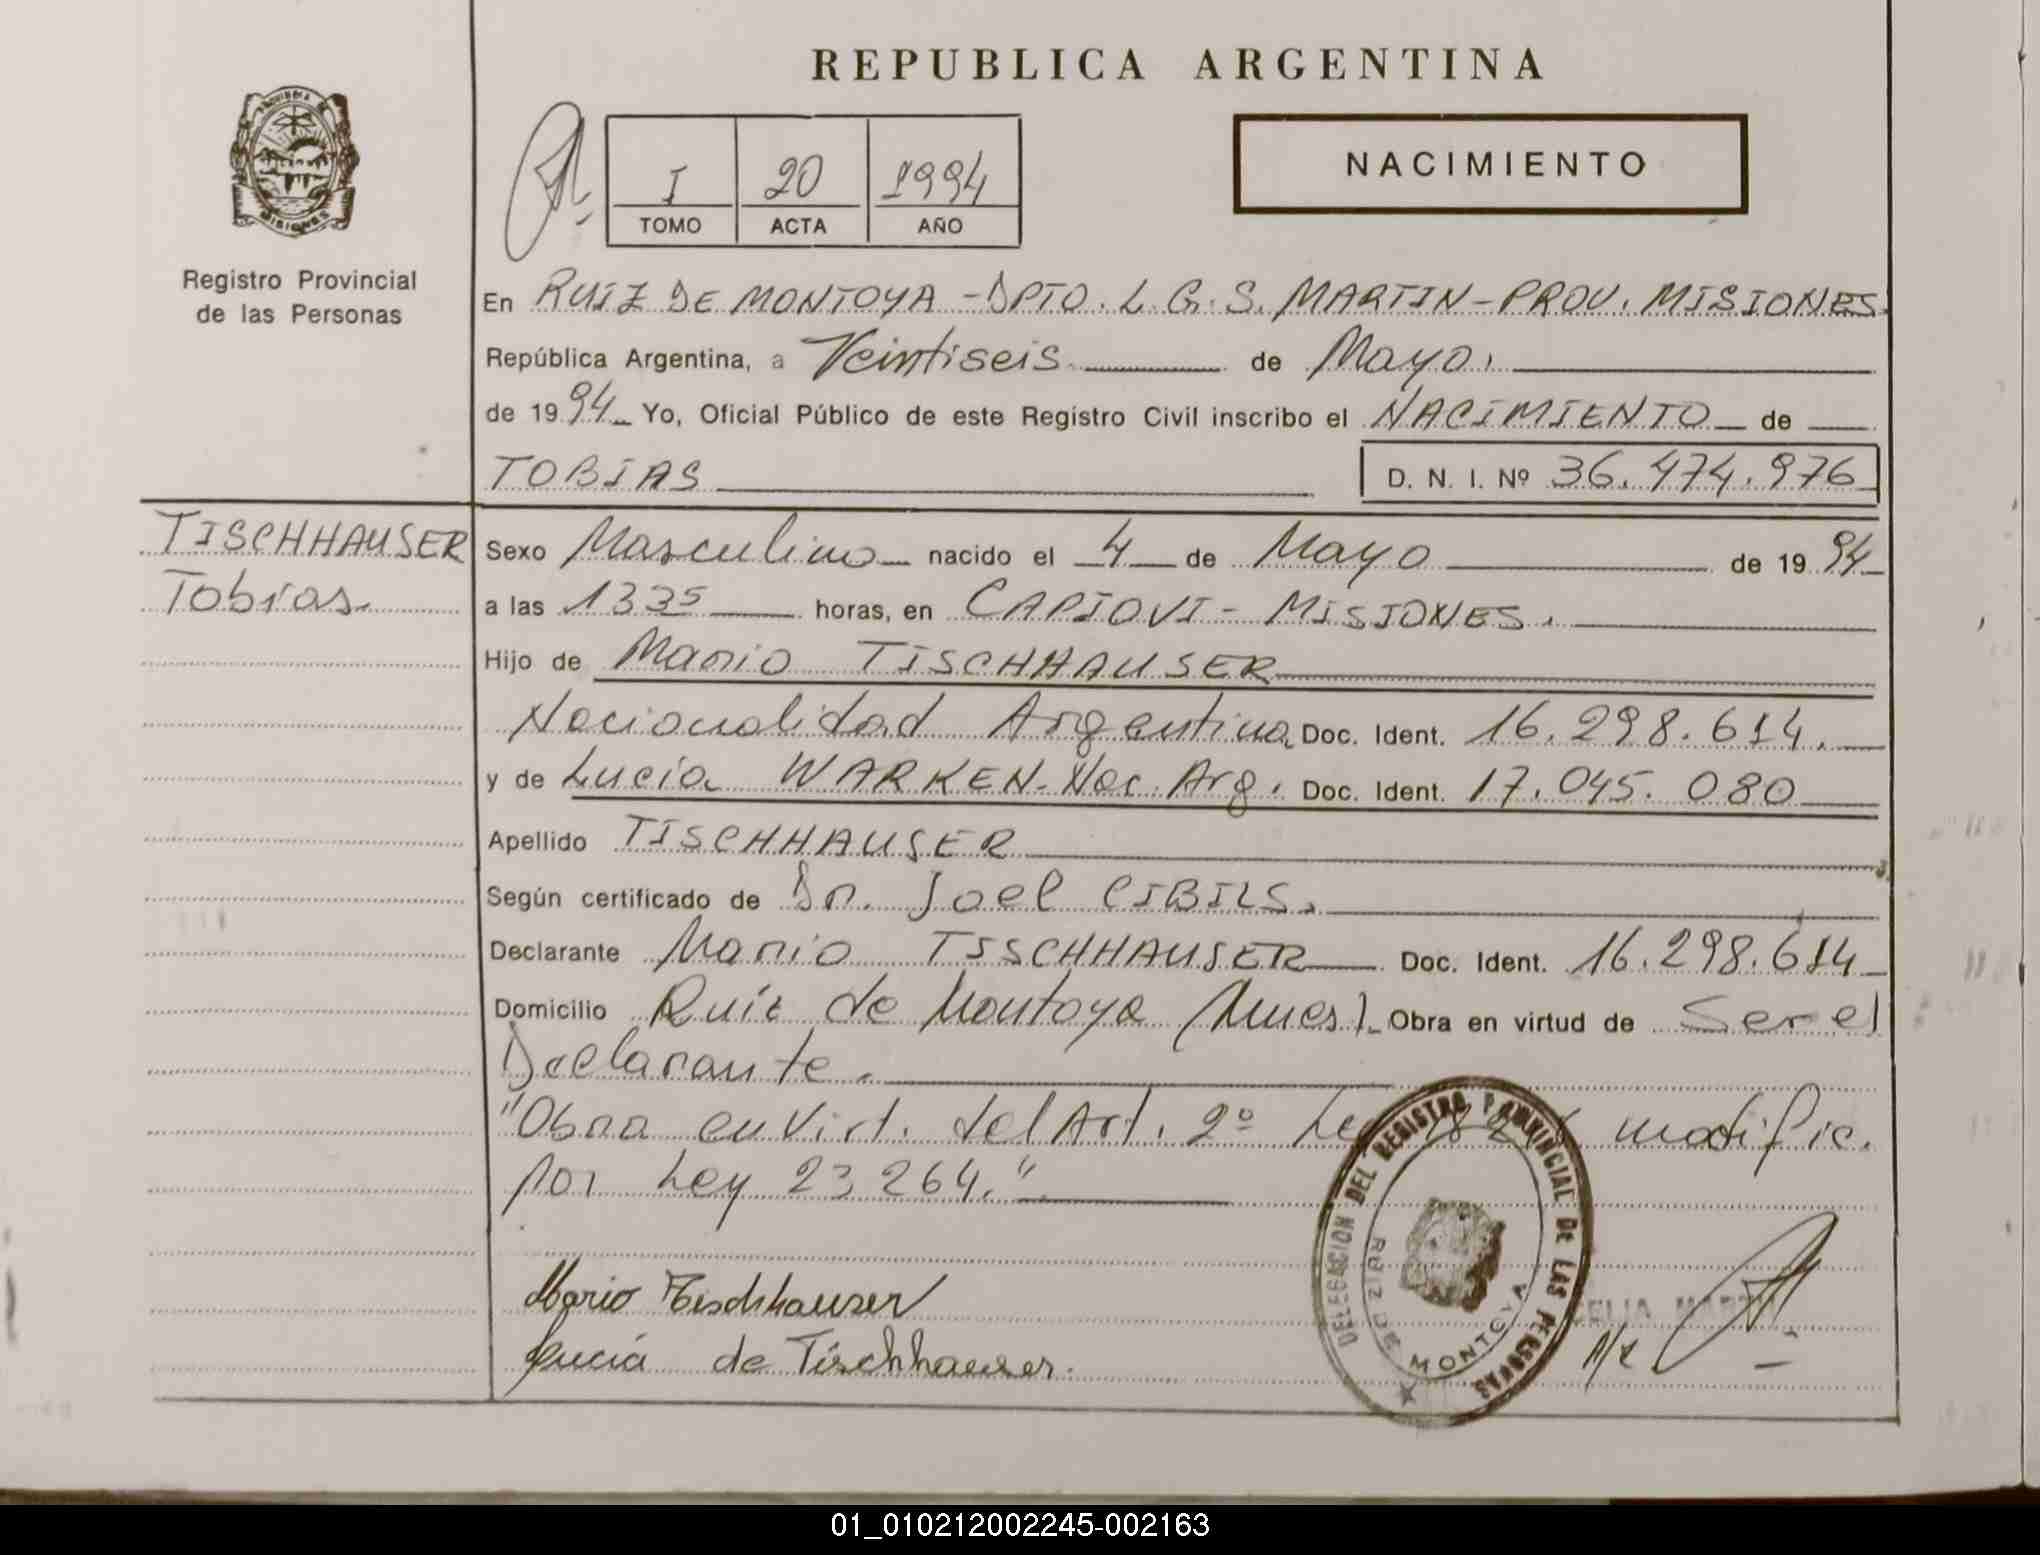 REPUBLICA ARGENTINA
PROVINCIA DE
MISIONES
Registro Provincial
de las Personas
I 20 1994
TOMO ACTA AÑO
NACIMIENTO
En RUIZ DE MONTOYA - DPTO. L. G. S. MARTIN - PROV. MISIONES.
República Argentina, a Veintiseis de Mayo.
de 1994 Yo, Oficial Público de este Registro Civil inscribo el NACIMIENTO de
TOBIAS D. N. I. Nº 36.474.976
TISCHHAUSER
Tobias.
Sexo Masculino nacido el 4 de Mayo de 1994
a las 13 35 horas, en CAPIOVI - MISIONES.
Hijo de Mario TISCHHAUSER
Nacionalidad Argentina Doc. Ident. 16.298.614.
y de Lucía WARKEN - Nac. Arg. Doc. Ident. 17.045.080
Apellido TISCHHAUSER
Según certificado de Dr. Joel CIBILS.
Declarante Mario TISCHHAUSER Doc. Ident. 16.298.614
Domicilio Ruiz de Montoya (Mnes). Obra en virtud de Ser el
Declarante.
"Obra en Virt. del Art. 2º Ley modific.
por Ley 23264."
Mario Tischhauser
Lucía de Tischhauser.
DELEGACION DEL REGISTRO PROVINCIAL DE LAS PERSONAS
RUIZ DE MONTOYA
01_010212002245-002163